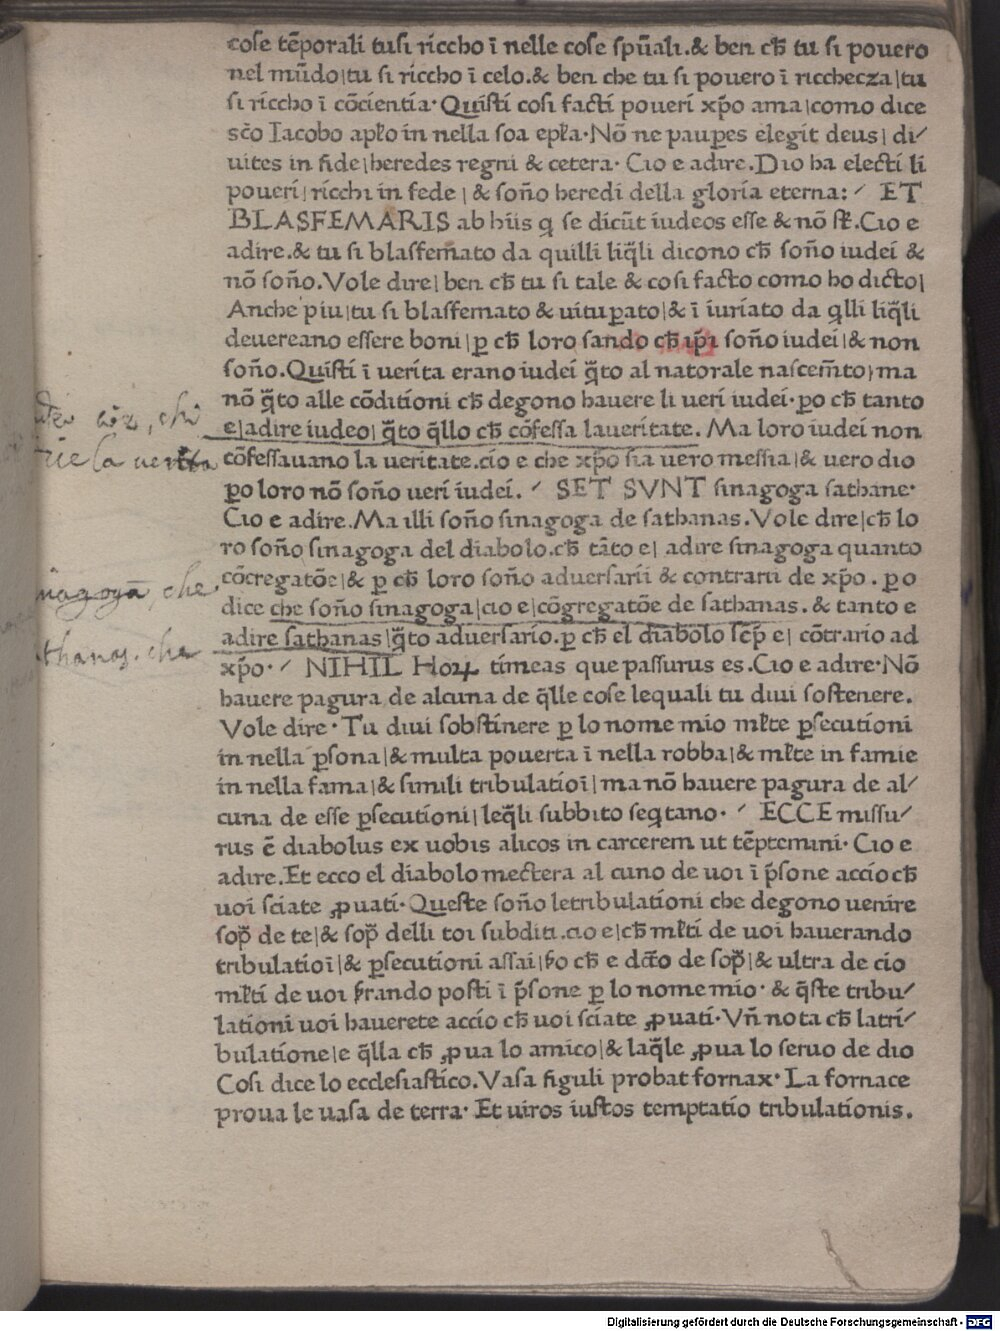 cose tēporali tusi riccho ī nelle cose spūali.& ben cħ tu si pouero
nel mūdo|tu si riccho ī celo.& ben che tu si pouero ī ricchecza|tu
si riccho ī cōcientia·Quisti cosi facti poueri xp̄o ama|como dice
sc̄o Iacobo apɫo in nella soa epɫa·Nō ne paup̱es elegit deus| di⸗
uites in fide|heredes regni & cetera· Cio e adire.Dio ha electi li
poueri|ricchi in fede|& soño heredi della gloria eterna:⸗ ET
BLASFEMARIS ab hiis q̄ se dicūt iudeos esse & nō sɫ.Cio e
adire.& tu si blasfem̄ato da quilli liq̄li dicono cħ soño iudei &
nō soño.Vole dire|ben cħ tu si tale & cosi facto como ho dicto|
Anche piu|tu si blasfemato & uitup̱ato|& ī iuriato da q̄lli liq̄li
deuereano essere boni|p̱ cħ loro sando cħ ip̄i soño iudei|& non
soño.Quisti ī uerita erano iudei q̄to al natorale nascem̄to|ma
nō q̄to alle cōditioni cħ degono hauere li ueri iudei·p̱o cħ tanto
e|adire iudeo|q̄to q̄llo cħ cōfessa laueritate.Ma loro iudei non
cōfessauano la ueritate.cio e che xp̄o sia uero messia|& uero dio
p̱o loro nō soño ueri iudei.⸗ SET SVNT sinagoga sathane·
Cio e adire.Ma illi soño sinagoga de sathanas.Vole dire|cħ lo
ro soño sinagoga del diabolo.cħ tāto e| adire sinagoga quanto
cōcregatōe|& p̱ cħ loro soño aduersarii & contrarii de xp̄o.p̱o
dice che soño sinagoga|cio e|cōgregatōe de sathanas.& tanto e
adire sathanas|q̄to aduersario.p̱ cħ el diabolo sēp̱ e| cōtrario ad
xp̄o·⸗ NIHIL Hoꝝ timeas que passurus es.Cio e adire·Nō
hauere pagura de alcuna de q̄lle cose lequali tu diui sostenere.
Vole dire·Tu diui sobstinere p̱ lo nome mio mɫte p̱secutioni
in nella p̱sona|& multa pouerta ī nella robba|& mɫte in famie
in nella fama|& simili tribulatioī|ma nō hauere pagura de al⸗
cuna de esse p̱secutioni|leq̄li subbito seq̄tano·⸗ ECCE missu⸗
rus ē diabolus ex uobis alicos in carcerem ut tēptemini·Cio e
adire.Et ecco el diabolo mectera al cuno de uoi ī p̄sone acciocħ
uoi sciate ꝓuati·Queste soño letribulationi che degono uenire
sop̄ de te|& sop̄ delli toi subditi.cio e|cħ mɫti de uoi hauerando
tribulatioī|& p̱secutioni assai|p̱o cħ e dc̄to de sop̄|& ultra de cio
mɫti de uoi s̄rando posti ī p̄sone p̱ lo nome mio·& q̄ste tribu⸗
lationi uoi hauerete accio cħ uoi sciate ꝓuati·Vn̄ nota cħ latri⸗
bulatione|e q̄lla cħ ꝓua lo amico|& laq̄le ꝓua lo seruo de dio
Cosi dice lo ecclesiastico.Vasa figuli probat fornax·La fornace
proua le uasa de terra·Et uiros iustos temptatio tribulationis.
la uerita
che
che
Digitalisierung gefördert durch die Deutsche Forschungsgemeinschaft - DFG